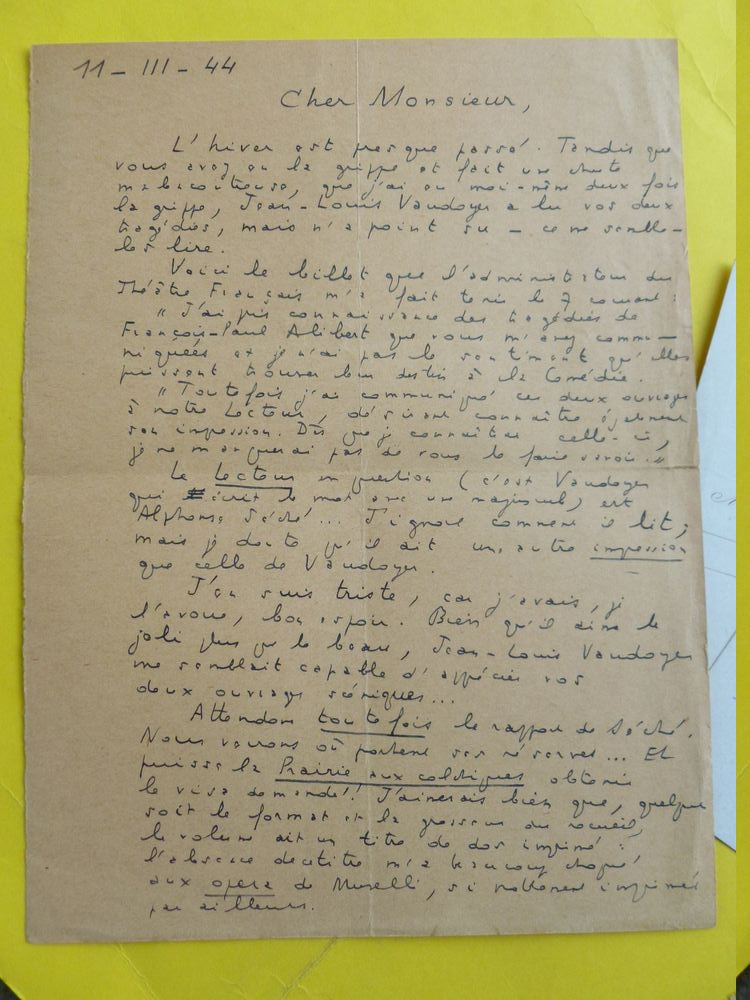 11 - III - 44
Cher Monsieur,
L'hiver est presque passé. Tandis que
vous avez eu la grippe et fait une chute
malencontreuse, que j'ai eu moi-même deux fois
la grippe, Jean-Louis Vaudoyer a lu vos deux
tragédies, mais n'a point su - ce me semble -
les lire.
Voici le billet que l'administrateur du
Théâtre Français m'a fait tenir le 7 courant :
"J'ai pris connaissance des tragédies de
François-Paul Alibert que vous m'avez commu-
niquées et je n'ai pas le sentiment qu'elles
puissent trouver leur destin à la Comédie.
"Toutefois j'ai communiqué ces deux ouvrages
à notre Lecteur, désirant connaître également
son impression. Dès que je connaîtrai celle-ci,
je ne manquerai pas de vous le faire savoir."
Le Lecteur en question (c'est Vaudoyer
qui écrit le mot avec une majuscule) est
Alphonse Séché... J'ignore comment il lit ;
mais je doute qu'il ait une autre impression
que celle de Vaudoyer.
J'en suis triste, car j'avais, je
l'avoue, bon espoir. Bien qu'il aime le
joli plus que le beau, Jean-Louis Vaudoyer
me semblait capable d'apprécier vos
deux ouvrages scéniques...
Attendons toutefois le rapport de Séché.
Nous verrons où portent ses réserves... Et
puisse la Prairie aux colchiques obtenir
le visa demandé! J'aimerais bien que, quelque
soit le format et la grosseur du recueil,
le volume ait un titre de dos imprimé :
l'absence de titre m'a beaucoup choqué
aux opera de Muselli, si nettement imprimés
par ailleurs.